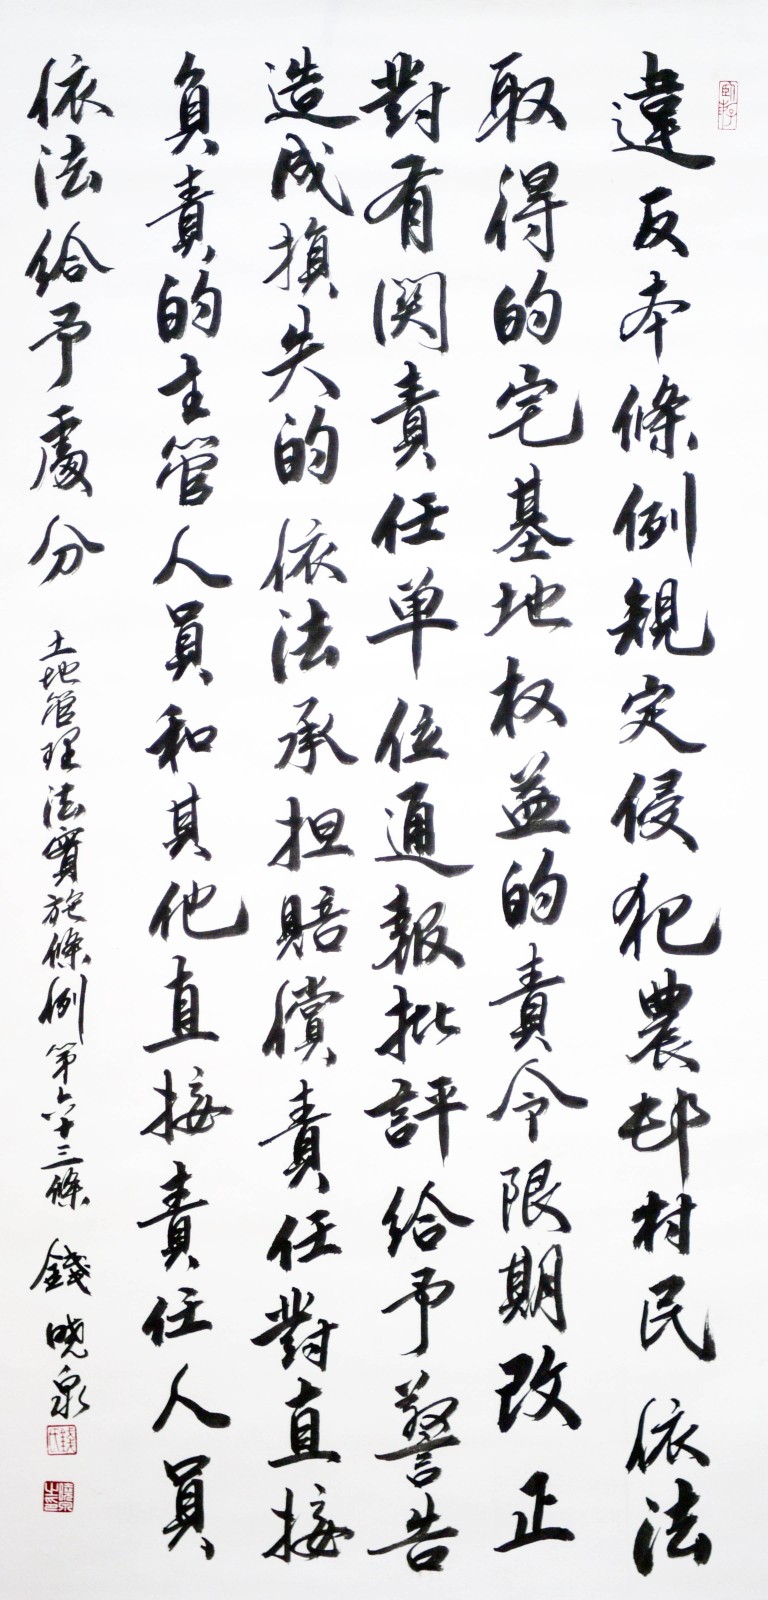 違反本條例規定侵犯農邨村民依法
取得的宅基地权益的責令限期改正
對有関責任单位通報批評給予警告
造成損失的依法承担賠償責任對直接
負責的主管人員和其他直接責任人員
依法給予處分
土地管理法實施條例第六十三條
錢晓泉